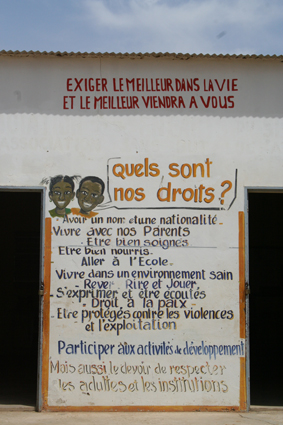 EXIGER LE MEILLEUR DANS LA VIE
ET LE MEILLEUR VIENDRA A VOUS
quels sont
nos droits?
- Avoir un nom et une nationalité.
Vivre avec nos Parents
- Etre bien soignés
Etre bien nourris.
Aller à l'Ecole.
Vivre dans un environnement sain
- Rever, Rire et Jouer.
S'exprimer et être écoutés
- Droit, à la paix.
- Etre protégés contre les violences
et l'exploitation
Participer aux activités de développement
Mais aussi le devoir de respecter
les adultes et les institutions